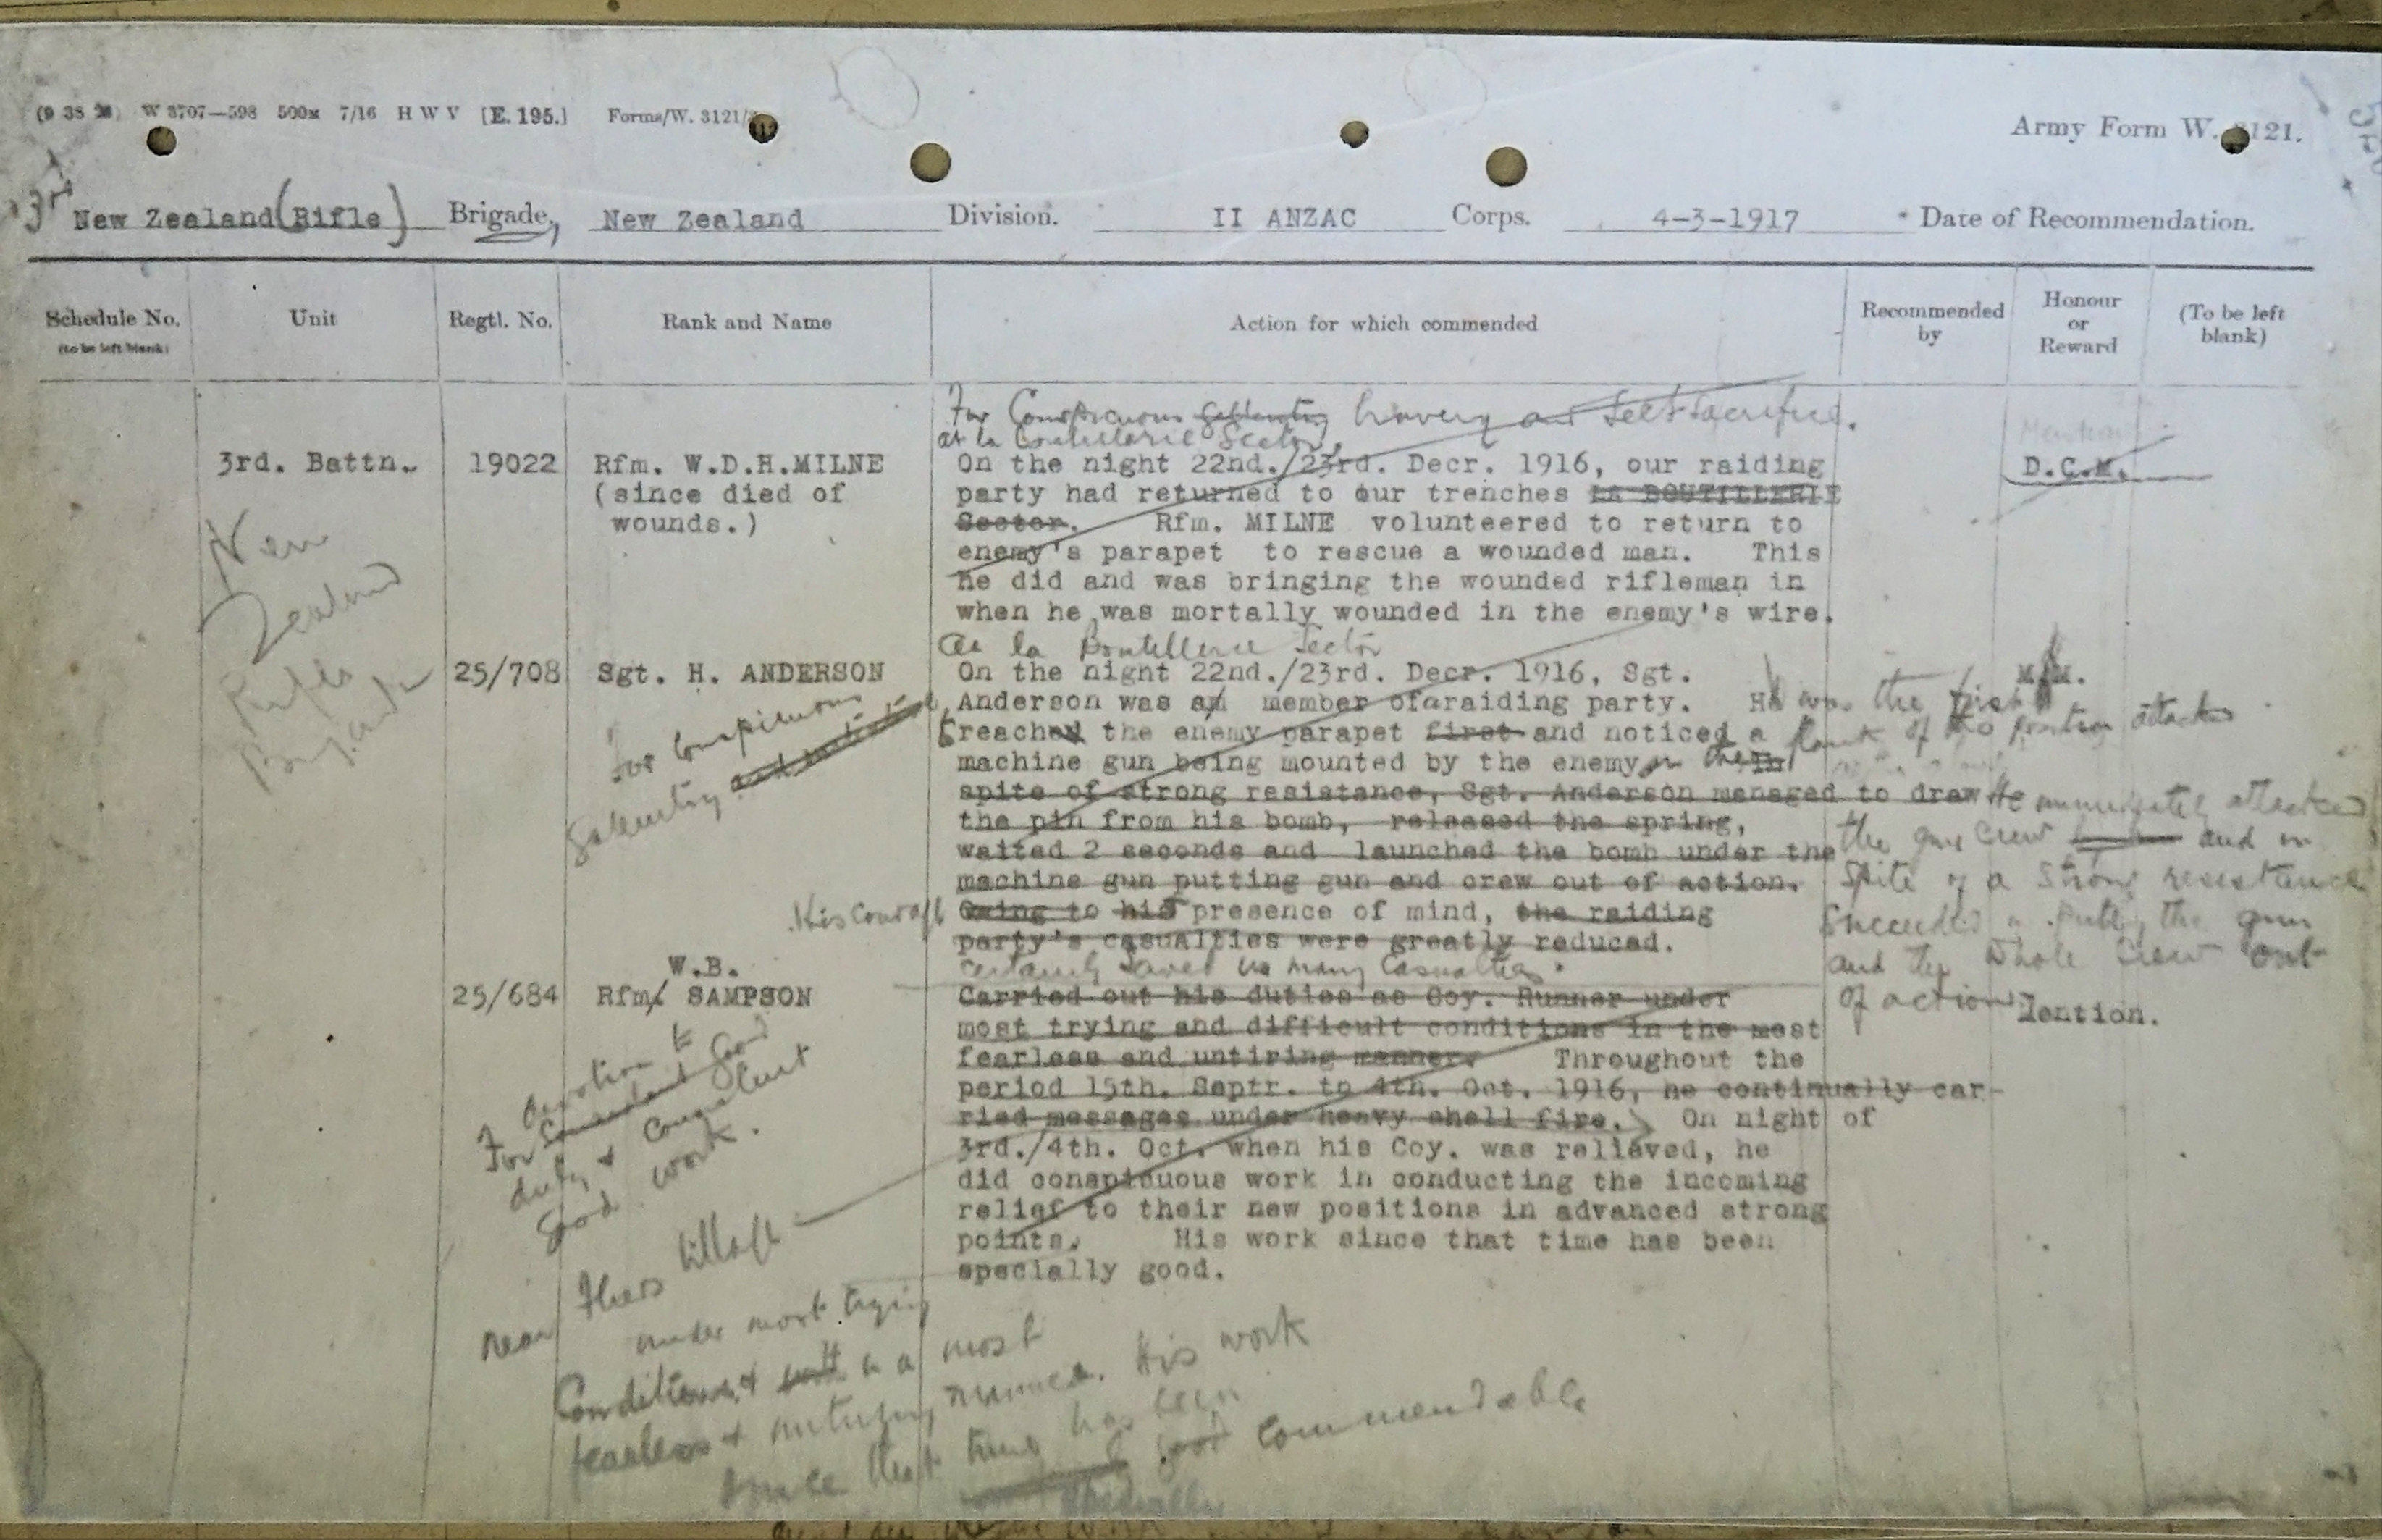 W 3707—598 500m 7/16 H W V [E. 195.] Forms/W. 3121/
Army Form W. 3121.
3rd New Zealand (Rifle) Brigade, New Zealand Division. II ANZAC Corps. 4-3-1917 * Date of Recommendation.
Schedule No. (to be left blank) Unit Regtl. No. Rank and Name Action for which commended Recommended by Honour or Reward (To be left blank)
For Conspicuous gallantry bravery and self sacrifice.
at la Boutillerie Sector,
3rd. Battn. 19022 Rfm. W.D.H.MILNE On the night 22nd./23rd. Decr. 1916, our raiding D.C.M.
(since died of party had returned to our trenches LA BOUTILLERIE
wounds.) Sector. Rfm. MILNE volunteered to return to
enemy's parapet to rescue a wounded man. This
he did and was bringing the wounded rifleman in
when he was mortally wounded in the enemy's wire.
New
Zealand
Rifle
Brigade
At la Boutillerie Sector
25/708 Sgt. H. ANDERSON On the night 22nd./23rd. Decr. 1916, Sgt. M.M.
Anderson was a member of a raiding party. He was the first
to reach the enemy parapet first and noticed a flank of the position attacked
machine gun being mounted by the enemy on the In
spite of strong resistance, Sgt. Anderson managed to draw He immediately attacked
the pin from his bomb, released the spring, the gun crew and in
waited 2 seconds and launched the bomb under the spite of a strong resistance
machine gun putting gun and crew out of action. succeeded in putting the gun
Owing to his presence of mind, the raiding and the whole crew out
party's casualties were greatly reduced. of action
for Conspicuous
Gallantry and
His courage
certainly saved us many casualties.
W.B.
25/684 Rfm. SAMPSON Carried out his duties as Coy. Runner under Mention.
most trying and difficult conditions in the most
fearless and untiring manner. Throughout the
period 15th. Septr. to 4th. Oct. 1916, he continually car-
ried messages under heavy shell fire. On night of
3rd./4th. Oct. when his Coy. was relieved, he
did conspicuous work in conducting the incoming
relief to their new positions in advanced strong
points. His work since that time has been
specially good.
For devotion to
duty & consistent
good work.
near Flers village
under most trying
Conditions & with in a most
fearless & untiring manner. His work
since that time has been
good commendable
specially